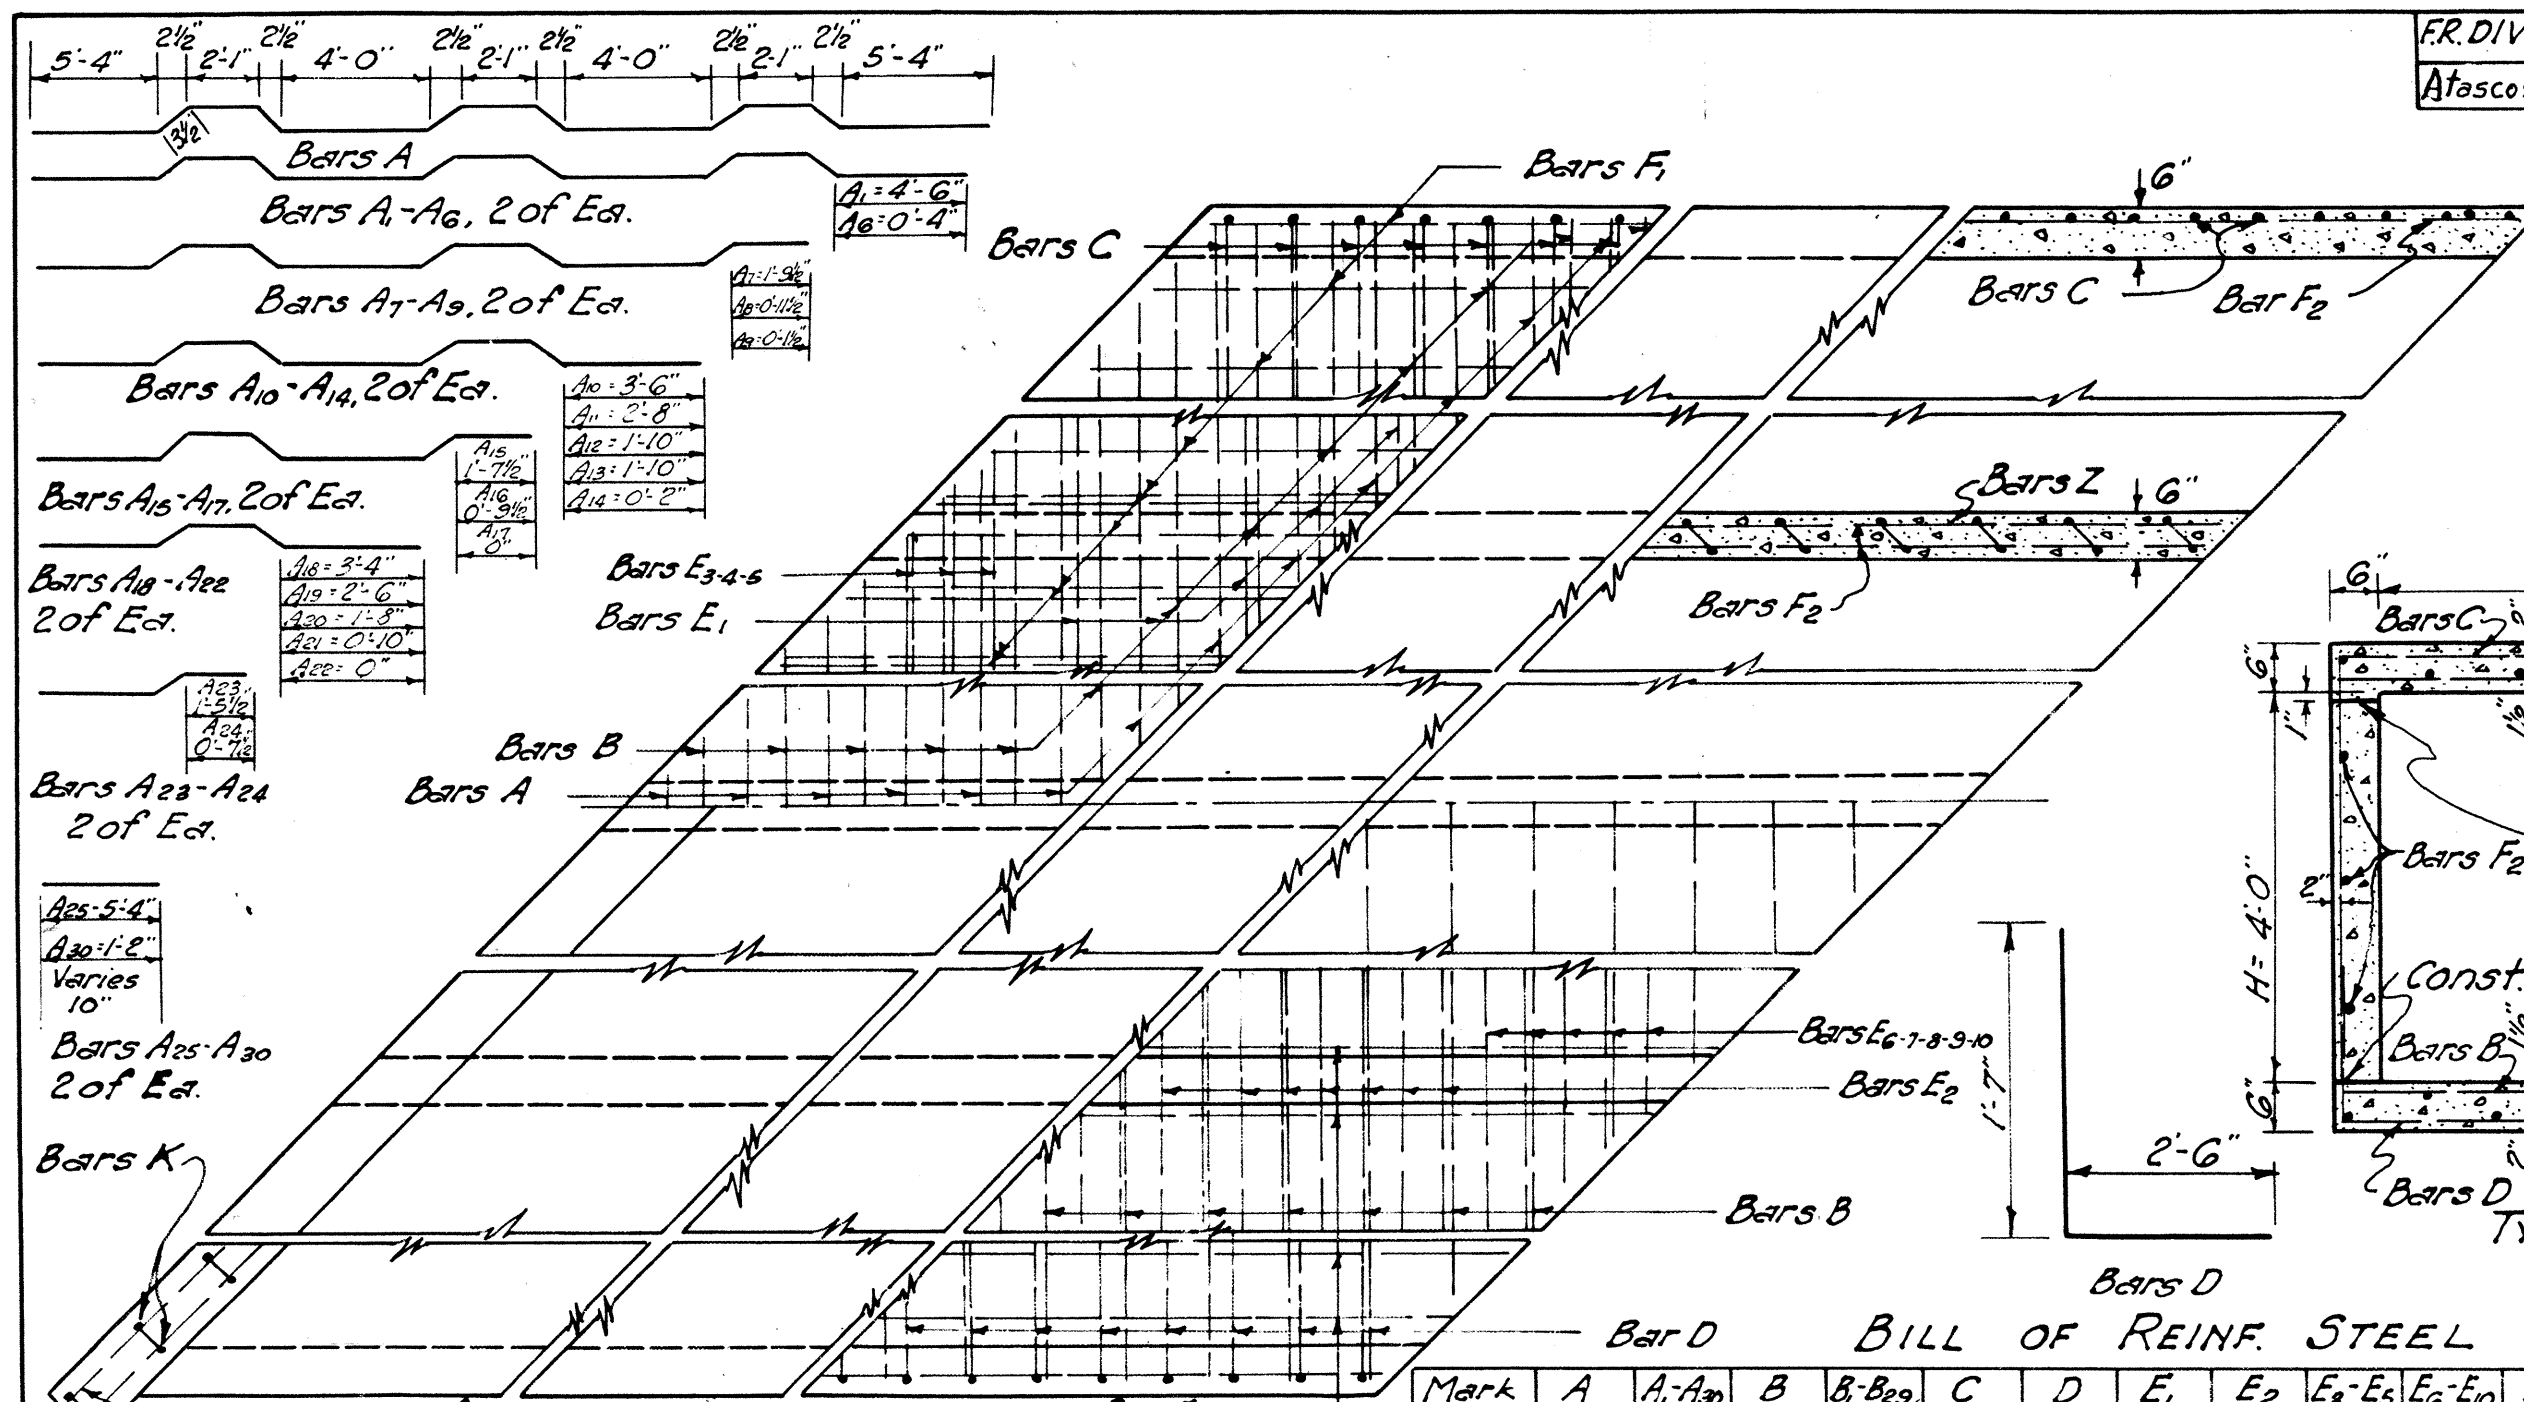 F.R. DIV
Atasco
5'-4" 2½" 2'-1" 2½" 4'-0" 2½" 2'-1" 2½" 4'-0" 2½" 2'-1" 2½" 5'-4"
3½"
Bars A
Bars A1-A6, 2 of Ea.
A1 = 4'-6"
A6 = 0'-4"
Bars A7-A9, 2 of Ea.
A7=1'-9½"
A8=0'-11½"
A9=0'-1½"
Bars A10-A14, 2 of Ea.
A10 = 3'-6"
A11 = 2'-8"
A12 = 1'-10"
A13 = 1'-10"
A14 = 0'-2"
Bars A15-A17, 2 of Ea.
A15
1'-7½"
A16
0'-9½"
A17
0"
Bars A18-A22
2 of Ea.
A18 = 3'-4"
A19 = 2'-6"
A20 = 1'-8"
A21 = 0'-10"
A22 = 0"
A23
1'-5½"
A24
0'-7½"
Bars A23-A24
2 of Ea.
A25-5'-4"
A30=1'-2"
Varies
10"
Bars A25-A30
2 of Ea.
Bars K
Bars F1
Bars C
Bars E3-4-5
Bars E1
Bars B
Bars A
6"
Bars C
Bar F2
Bars Z
6"
Bars F2
Bars E6-7-8-9-10
Bars E2
Bars B
Bar D
6"
Bars C
2"
6"
1"
1½"
Bars F2
2"
H = 4'-0"
Const.
Bars B
1½"
6"
2"
Bars D
1'-7"
2'-6"
Bars D
BILL OF REINF. STEEL
Mark A A1-A30 B B1-B29 C D E1 E2 E3-E5 E6-E10